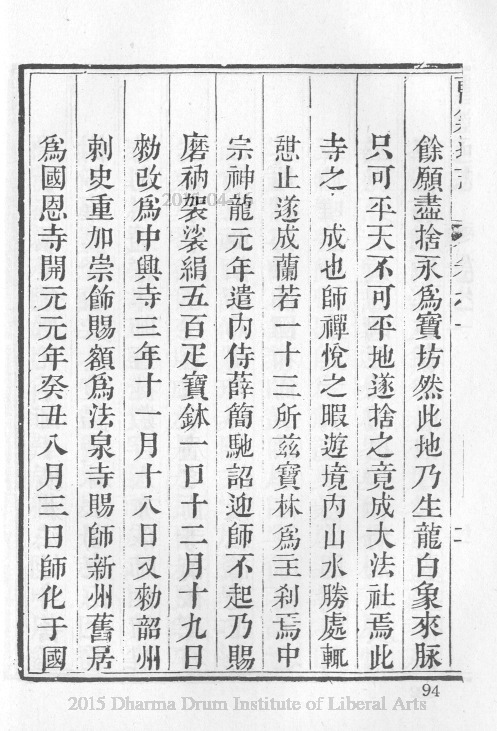 餘願盡捨永爲寶坊然此地乃生龍白象來脉
只可平天不可平地遂捨之竟成大法社焉此
寺之 成也師禪悅之暇遊境內山水勝處輒
憇止遂成蘭若一十三所兹寶林爲主刹焉中
宗神龍元年遣內侍薛簡馳詔迎師不起乃賜
磨衲袈裟絹五百疋寶鉢一口十二月十九日
勑改爲中興寺三年十一月十八日又勑韶州
刺史重加崇飾賜額爲法泉寺賜師新州舊居
爲國恩寺開元元年癸丑八月三日師化于國
94
2015 Dharma Drum Institute of Liberal Arts